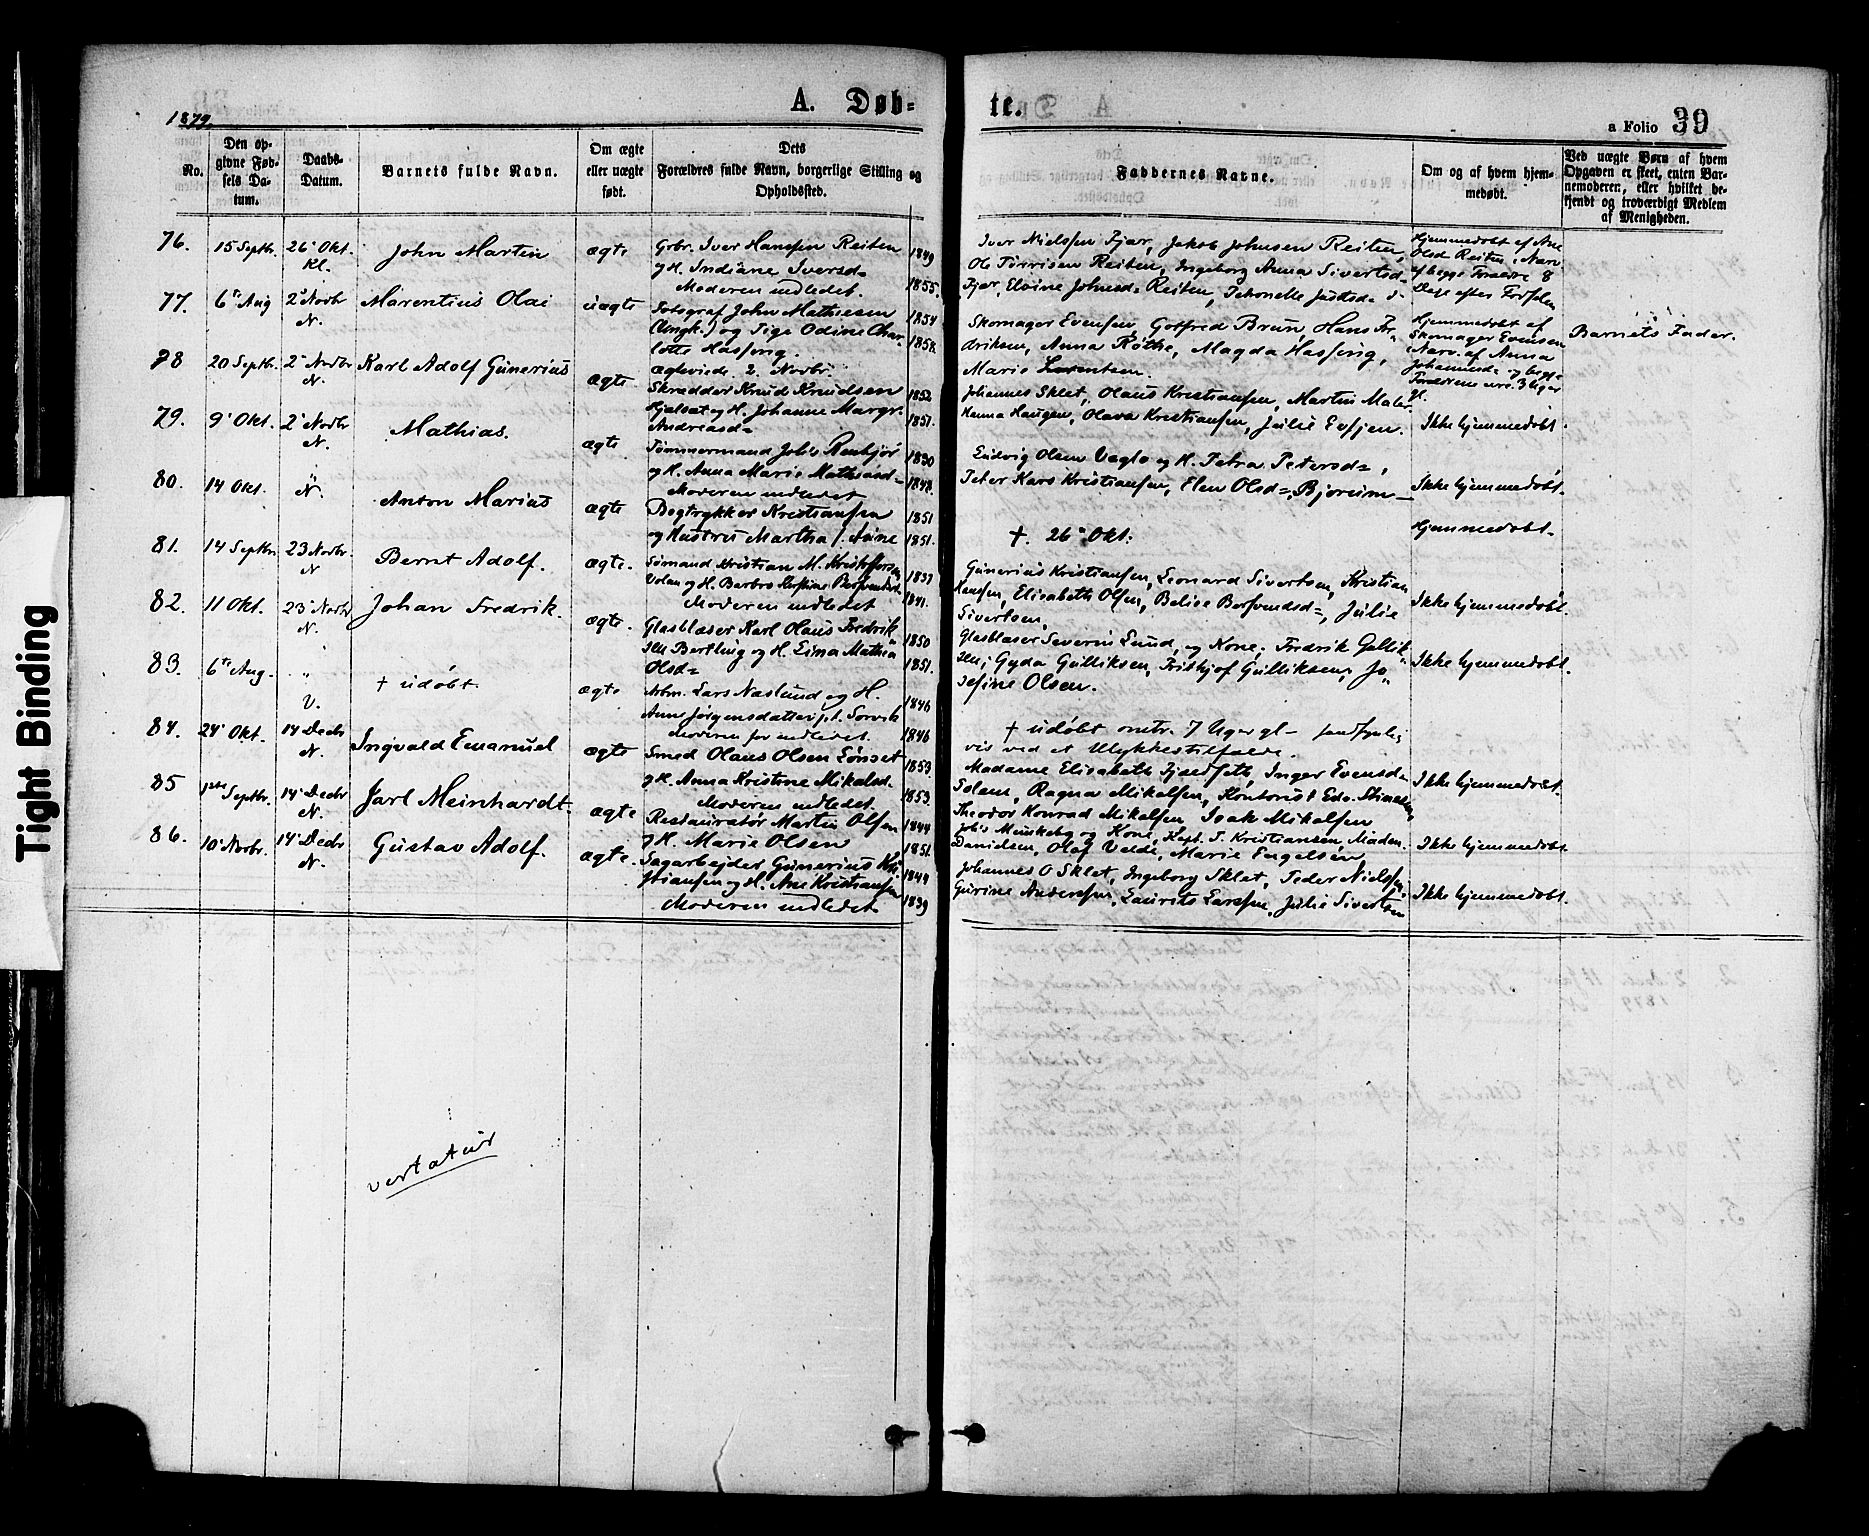 Tight Binding
1879.
A. Døb-
te.
a Folio 39
No.
Den op-
givne Fød-
sels Da-
tum.
Daabs-
Datum.
Barnets fulde Navn.
Om ægte
eller uægte
født.
Dets
Forældres fulde Navn, borgerlige Stilling og
Opholdssted.
Faddernes Navne.
Om og af hvem hjem-
medøbt.
Ved uægte Børn af hvem
Opgaven er skeet, enten Bar-
nemoderen, eller hvilket be-
kjendt og troværdigt Medlem
af Menigheden.
76.
15 Septbr.
26' Okt.
Kl.
John Martin
ægte
Grbr. Iver Hanssen Reiten
og H. Indiane Iversd=
Moderen indledet.
1849
1855.
Iver Nielssen Fjær, Jakob Johnsen Reiten,
Ole Tørrisen Reiten, Ingeborg Anna Sivertsd=
Fjær, Elvine Johnsd= Reiten,
Hjemmedøbt af Ane
Olsd Reiten i Nærv
af begge Forældre 8
Dage efter Fødselen
77.
6te Aug
2' Novbr
N.
Marentius Olai
uægte
Fotograf John Mathiesen
(Ungk.) og Pige Odine Char-
lotte Hassing.
Ægteviede 2. Novbr.
1854
1858.
Skomager Evensen, Gotfred Brun, Hans Fr.
driksen, Anna Röthe, Magda Hassing,
Marie Lorentsen.
Hjemmedøbt af
Skomager Evensen
i Nærv. af Anna
Johannesd= og begge
Forældrene
Barnets Fader.
78
20 Septbr.
2' Novbr
N.
Karl Adolf Gunerius
ægte
Skrædder Knud Knudsen
og H. Johanne Margr.
Andreasd=
1852
1851.
Johannes Sklet, Olaus Kristiansen, Martin Maler
Hanna Haugen, Olava Kristiansen, Julie Evjen.
Ikke hjemmedøbt.
79.
9' Okt.
2' Novbr
N.
Mathias.
ægte
Tømmermand Johs Renbjør
og H. Anna Marie Mathiasd=
Moderen indledet
1830
Ludvig Olsen Vagle og H. Petra Petersd=,
Peter Kars Kristiansen, Elen Olsd=, Bjoreim
Ikke hjemmedøbt.
80.
14 Okt.
"
N.
Anton Marius
ægte
Bogtrykker Kristiansen
og Hustru Martha f. Asine
1851
1851.
†. 26' Okt:
Hjemmedøbt.
81.
14 Septbr
23 Novbr.
N
Bernt Adolf.
ægte.
Sømand Kristian M. Kristoffersen
Volan og H. Barbro Kristine
Moderen indledet
1837
1841.
Gunerius Kristiansen, Leonard Sivertsen, Kristian
Hansen, Elisabeth Olsen, Julie
Sivertsen.
Ikke hjemmedøbt.
82.
11 Okt.
23' Novbr
N.
Johan Fredrik.
ægte.
Glasblæser Karl Olaus Fredrik"
sen Bertling og H. Lina Mathea
Olsd=
1850
1851.
Glasblæser Severin Lund, og Kone, Fredrik Gullik"
sen; Gyda Gulliksen, Fritjof Gulliksen; Jo"
sefine Olsen.
Ikke hjemmedøbt.
83.
6te Aug.
"
V.
† udøbt.
ægte
Arbm. Lars Näslund og H.
Ane Jørgensdatter pt. Sorvik
Moderen før indledet.
1846
1846
† udøbt omtr. 7 Uger gl –
vis ved et Ulykkestilfælde.
84.
24' Okt.
14 Decbr
N.
Ingvald Emanuel
ægte
Smed Olaus Olsen Lønset
og H. Anna Kristine Mikalsd.
Moderen indledet.
1853
1853.
Madame Elisabeth Fjædseth, Inger Evensd=
Solem, Ragna Mikalsen, Kontorist Edv.
Theodor Konrad Mikalsen, Isak Mikalsen
Ikke hjemmedøbt.
85
1ste Septbr.
14' Decbr
N.
Jarl Meinhardt.
ægte
Restauratør Martin Olsen
og H. Marie Olsen
1844
1851.
Johs Meinkeby og Kone, Kapt. T. Kristiansen, Madam.
Danielsen, Olaf Velde, Marie Engelsen
Ikke hjemmedøbt.
86.
10' Novbr.
14' Decbr
N.
Gustav Adolf.
ægte.
Sagarbejder Gunerius Kri-
stiansen og H. Ane Kristiansen
Moderen indledet
1844
1839
Johannes O Sklet, Ingeborg Sklet, Peder Nielssen,
Gurine Anderssen, Laurits Larssen, Julie Sivertsen
Ikke hjemmedøbt.
vertatur